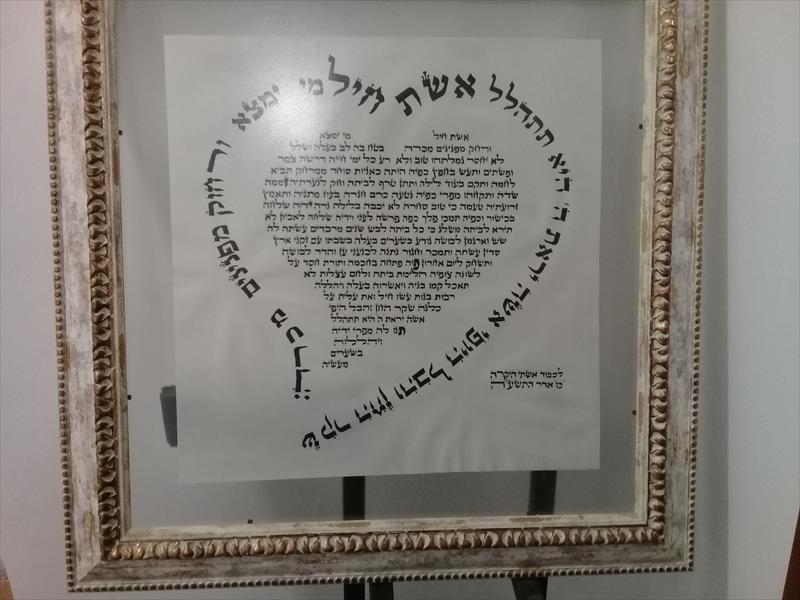 אשת חיל מי ימצא ורחוק מפנינים מכרה
שקר החן והבל היופי אשה יראת ה' היא תתהלל
אשת חיל מי ימצא
ורחק מפנינים מכרה בטח בה לב בעלה ושלל
לא יחסר גמלתהו טוב ולא רע כל ימי חייה דרשה צמר
ופשתים ותעש בחפץ כפיה היתה כאניות סוחר ממרחק תביא
לחמה ותקם בעוד לילה ותתן טרף לביתה וחק לנערתיה זממה
שדה ותקחהו מפרי כפיה נטעה כרם חגרה בעוז מתניה ותאמץ
זרועתיה טעמה כי טוב סחרה לא יכבה בלילה נרה ידיה שלחה
בכישור וכפיה תמכו פלך כפה פרשה לעני וידיה שלחה לאביון לא
תירא לביתה משלג כי כל ביתה לבש שנים מרבדים עשתה לה
שש וארגמן לבושה נודע בשערים בעלה בשבתו עם זקני ארץ
סדין עשתה ותמכר וחגור נתנה לכנעני עז והדר לבושה
ותשחק ליום אחרון פיה פתחה בחכמה ותורת חסד על
לשונה צופיה הליכות ביתה ולחם עצלות לא
תאכל קמו בניה ויאשרוה בעלה ויהללה
רבית בנות עשו חיל ואת עלית על
כלנה שקר החן והבל היפי
אשה יראת ה היא תתהלל
תנו לה מפרי ידיה
ויהללוה
בשערים
מעשיה
לכבוד אשתי היקרה
כו אדר התשע"ה